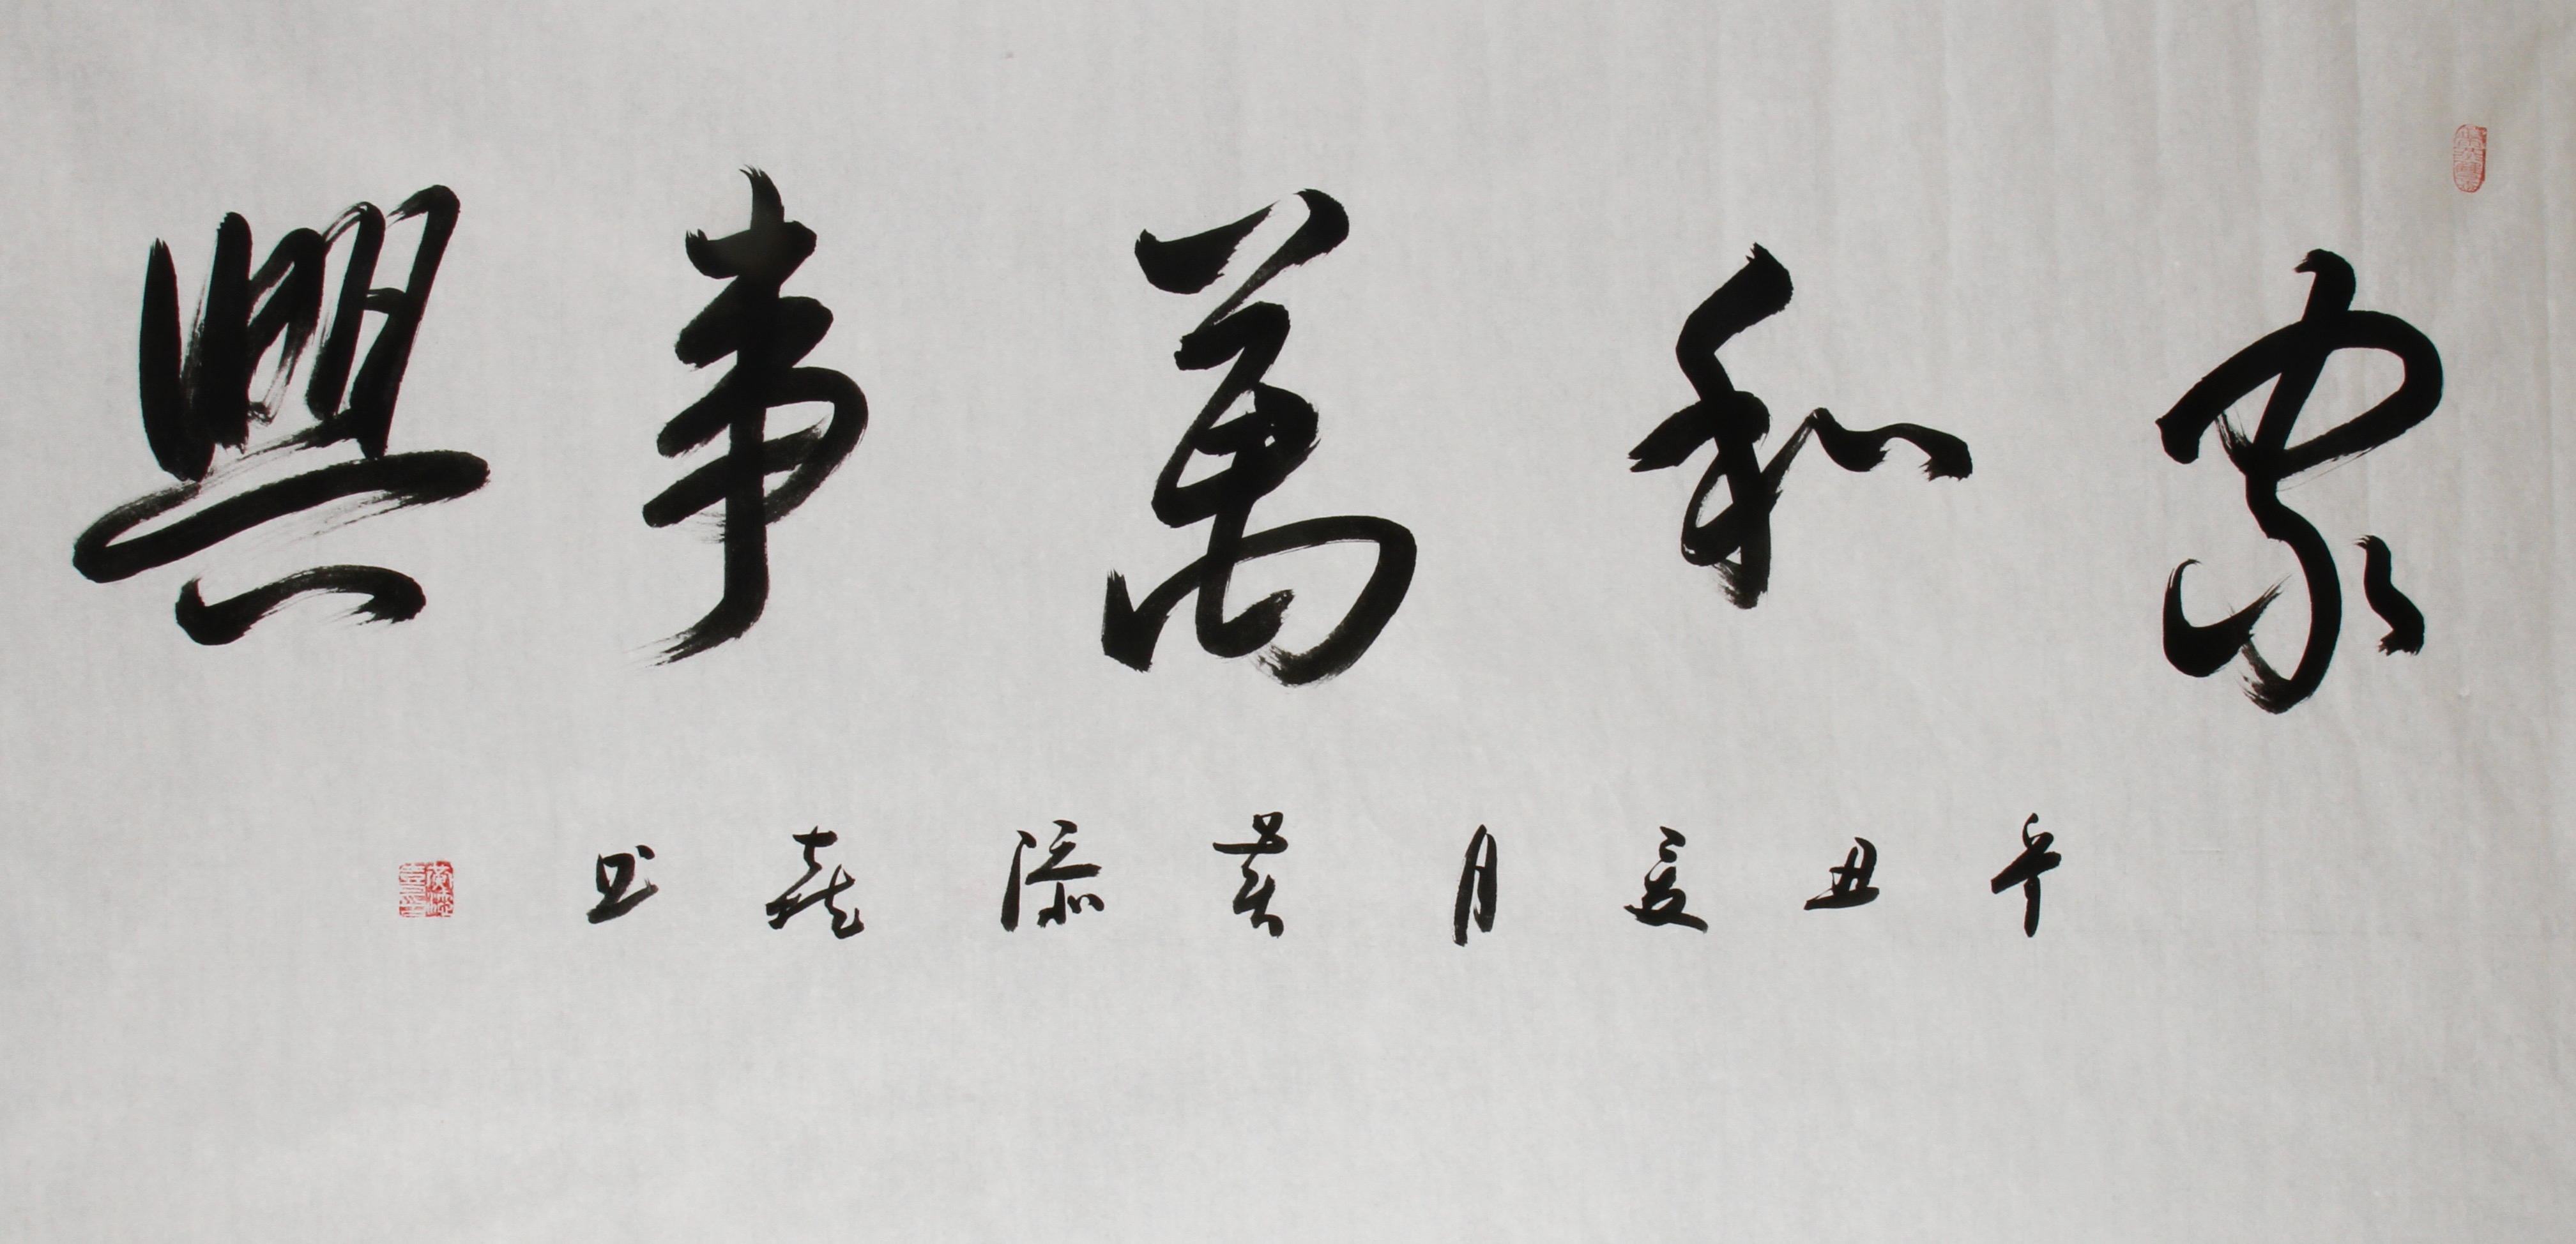 家和萬事興
辛丑夏月黄添喜書